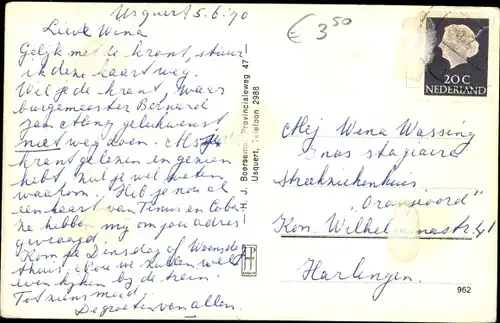 Usquert 5.6.'70
Lieve Wena
Gelijk met de krant, stuur
ik deze kaart weg.
Wil je de krant, waar
burgemeester Bernard
geluk wenst
niet weg doen. Als je
krant gelezen en gezien
hebt, zul je wel weten
waarom. Heb je nou al
een kaart van Tinus en Coba.
Ze hebben mij om jou adres
gevraagd.
Kom je Dinsdag of Woensd.
thuis, dan we zullen wel
even kijken bij de trein.
Tot ziens meid,
De groeten van allen.
H. J. Boersema, Provincialeweg 47
Usquert, Telefoon 2988
€ 3,50
20 C
NEDERLAND
Mej Wena Wassing
stagiaire
Streekziekenhuis
"Oranjeoord"
Kon. Wilhelminastr. 41
Harlingen.
962